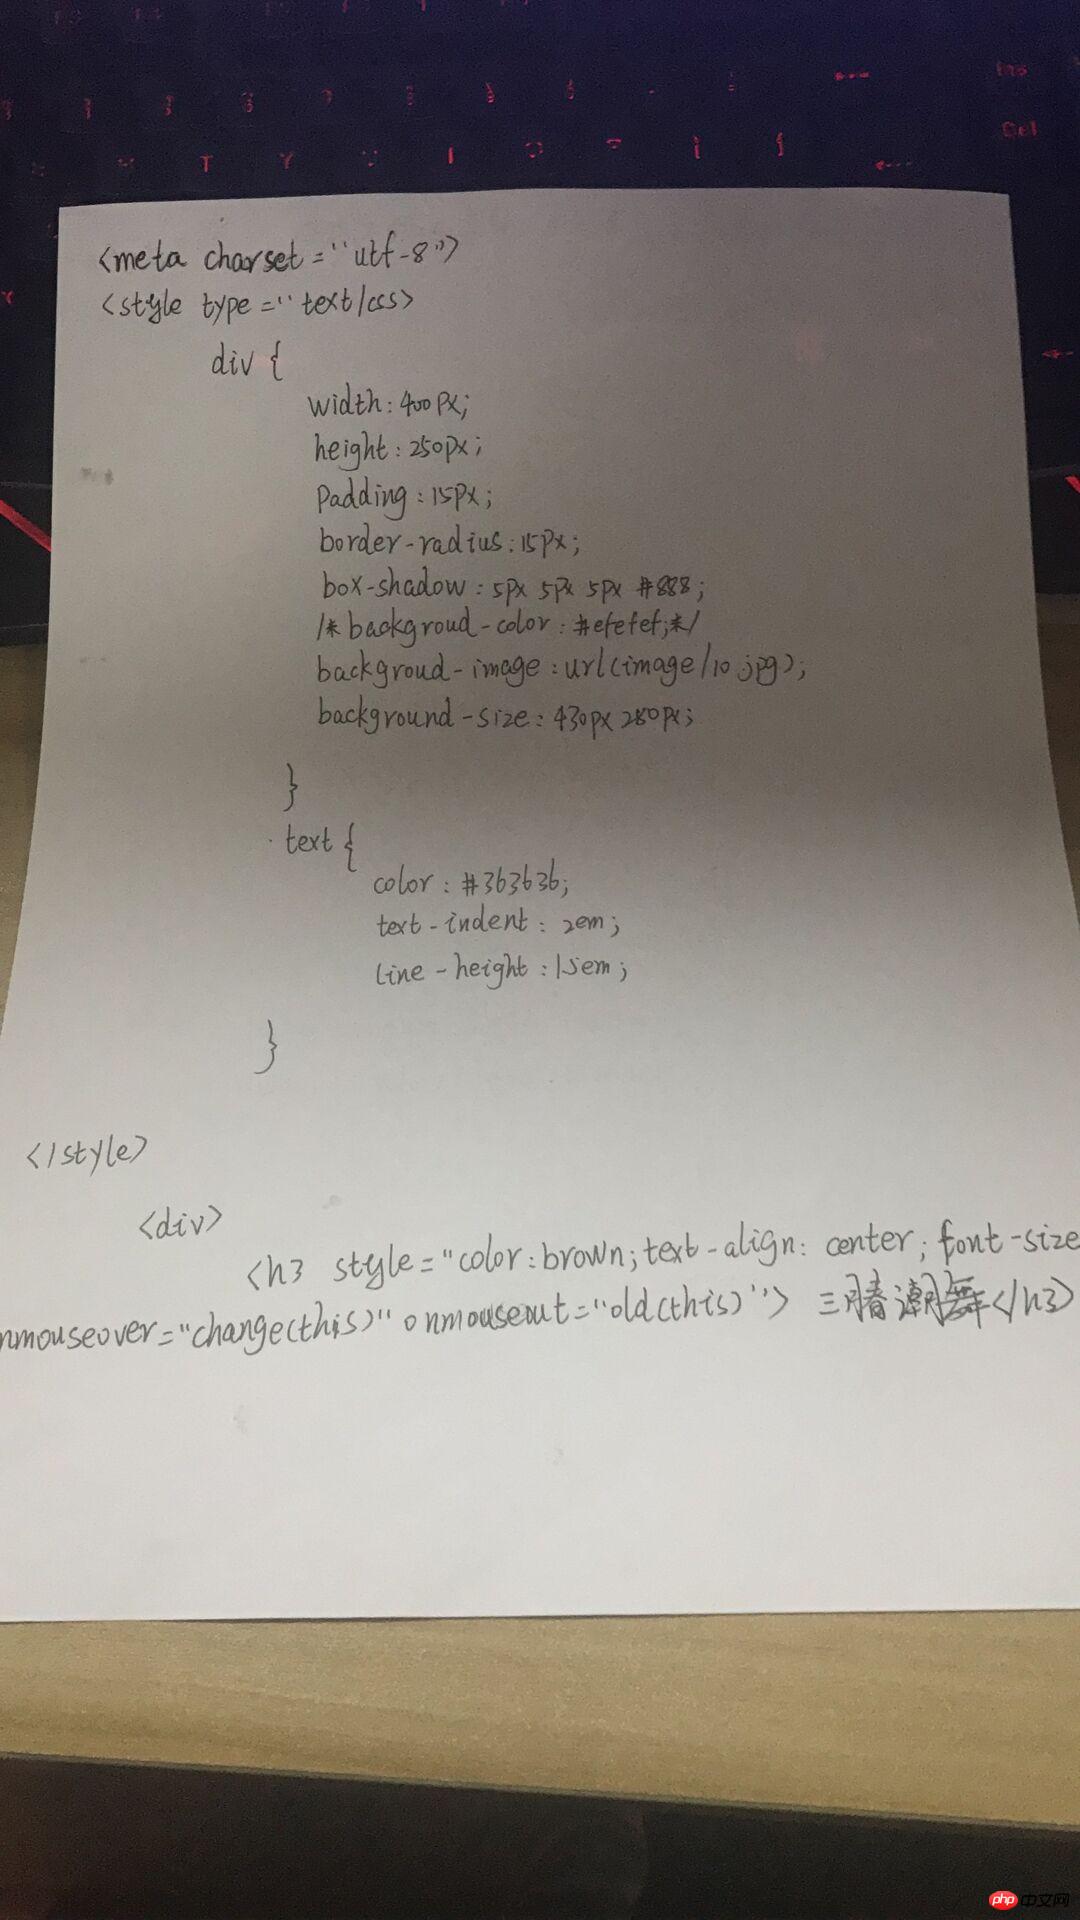 <meta charset="utf-8">
<style type="text/css>
div {
width:400px;
height:250px;
padding:15px;
border-radius:15px;
box-shadow:5px 5px 5px #888;
/*backgroud-color:#efefef;*/
backgroud-image:url(image/10.jpg);
background-size:430px 280px;
}
.text {
color:#363636;
text-indent:2em;
line-height:1.5em;
}
</style>
<div>
<h3 style="color:brown;text-align:center;font-size
nmouseover="change(this)" onmouseout="old(this)"> 三月春潮舞</h3>
php 中文网